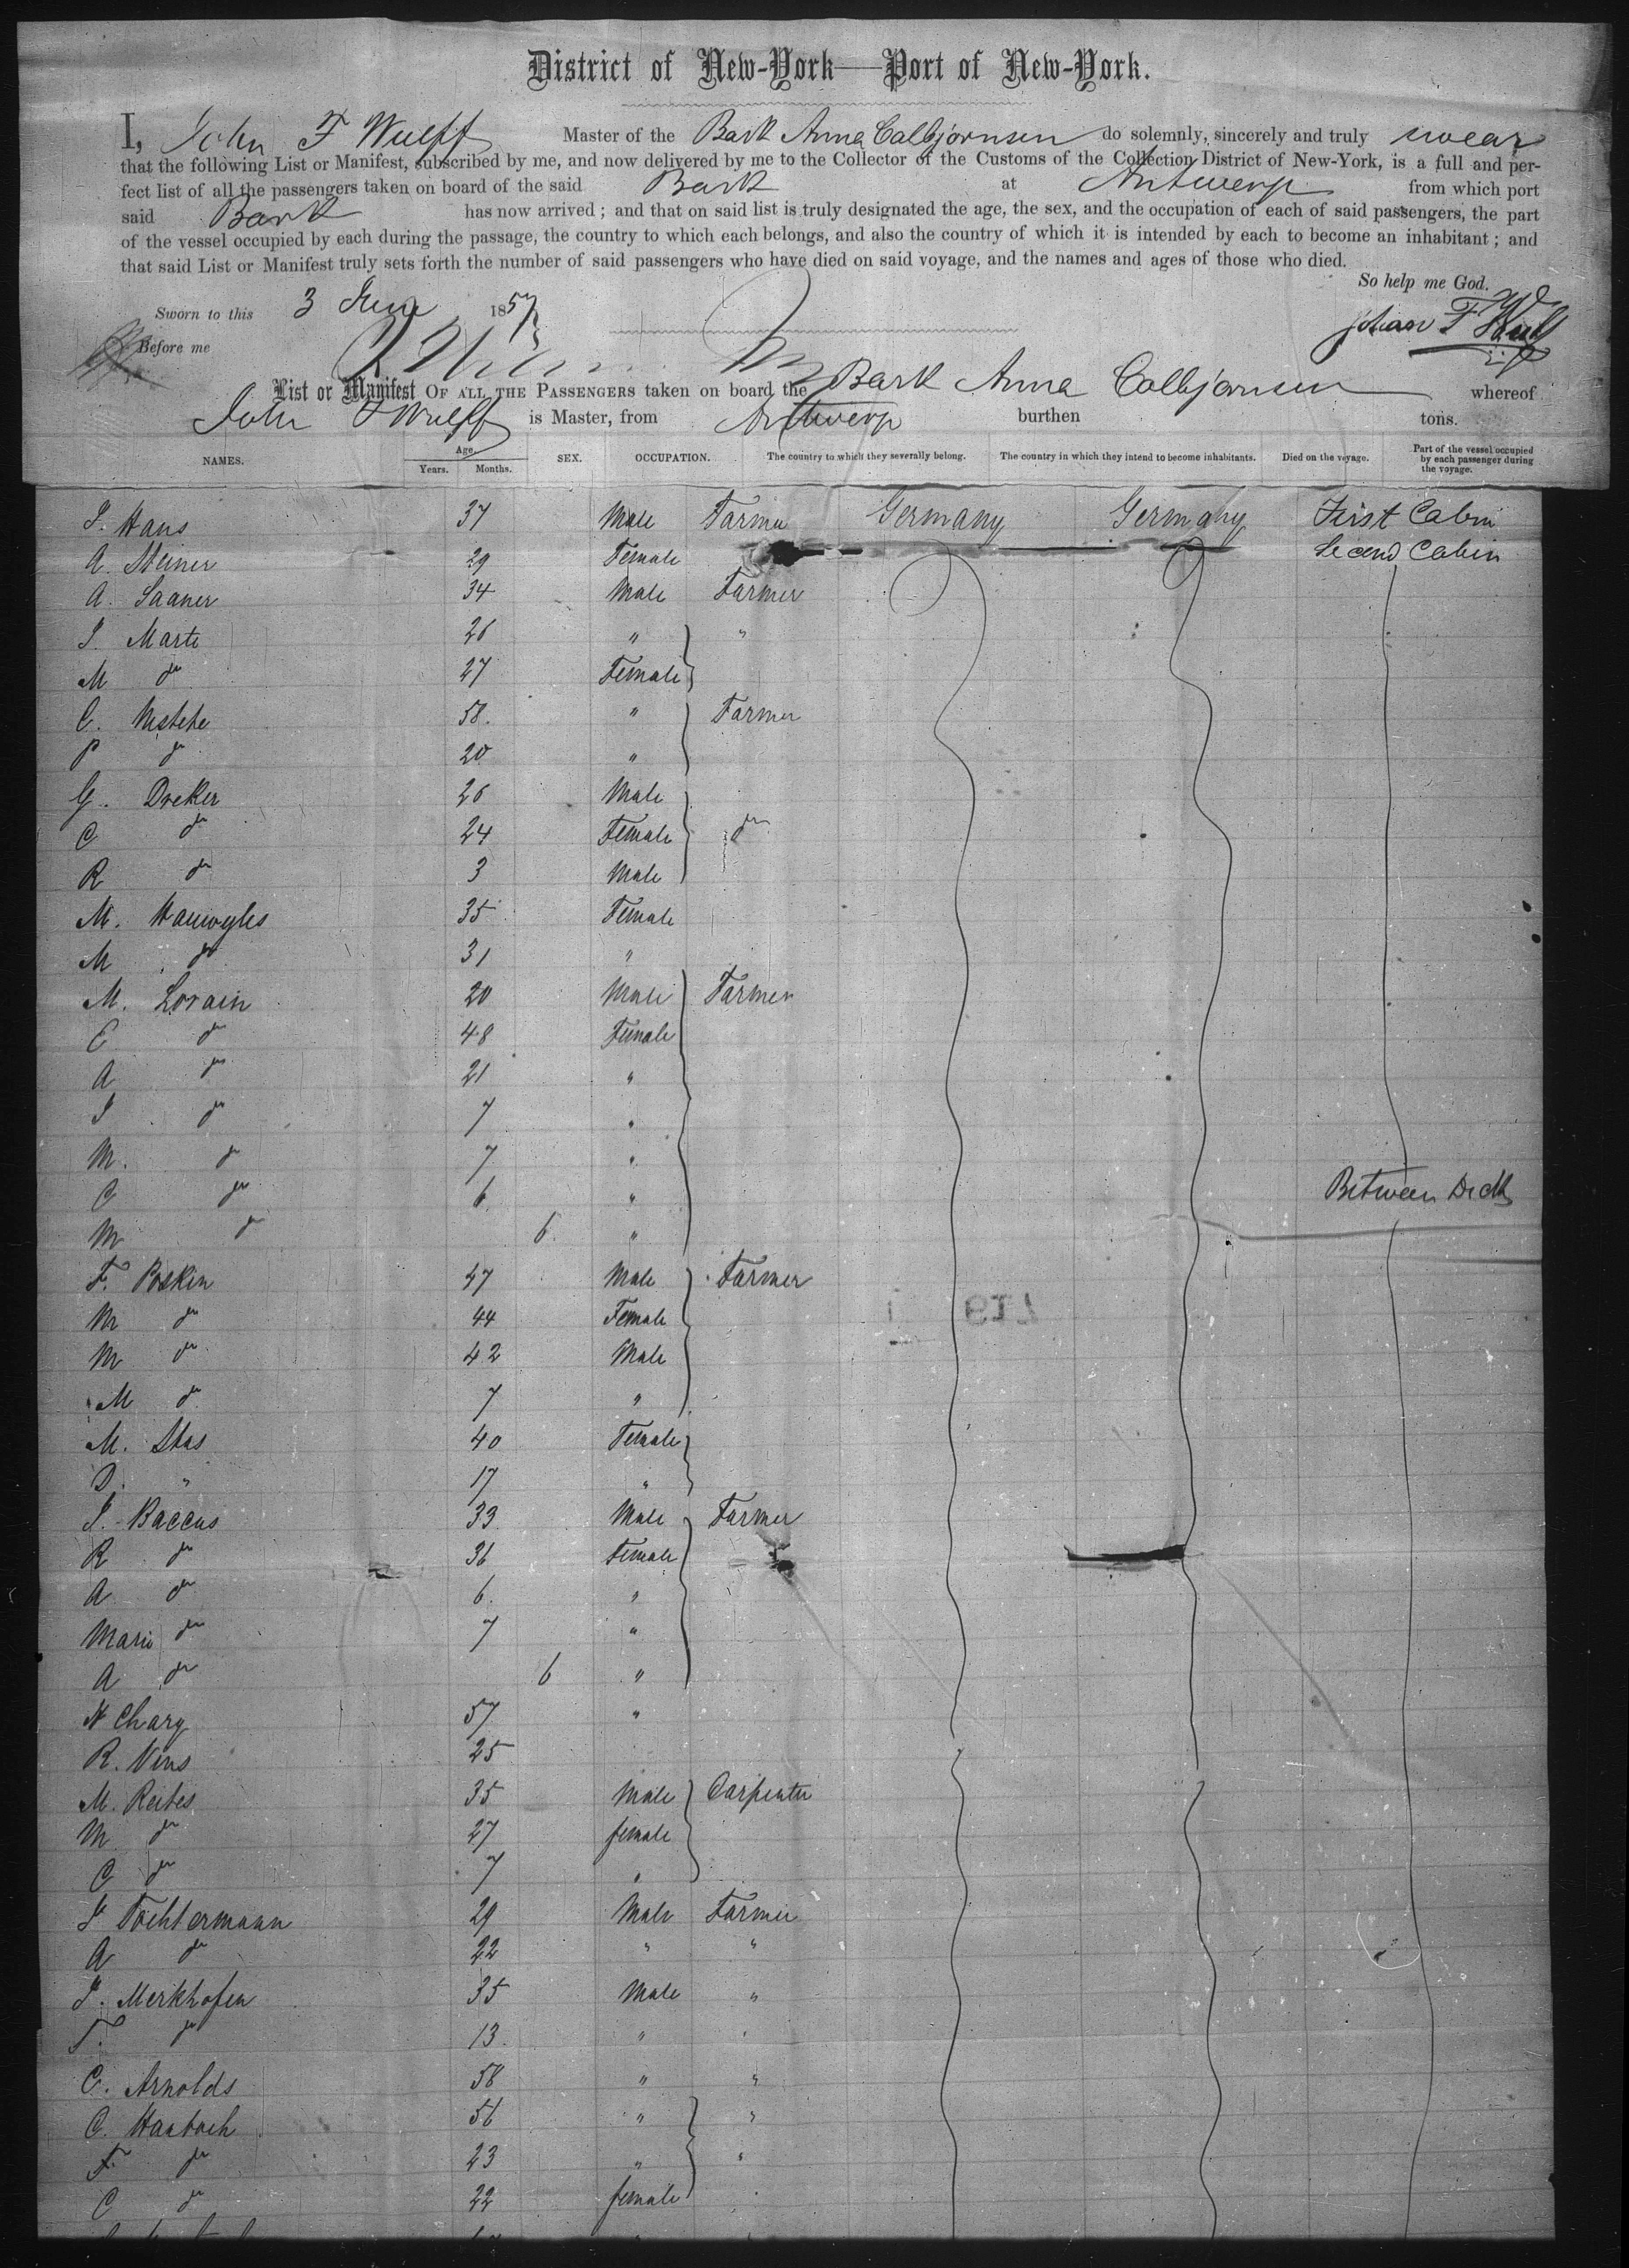 District of New-York—Port of New-York.
I, John F Wulff Master of the Bark Anna Colbjornsen do solemnly, sincerely and truly swear
that the following List or Manifest, subscribed by me, and now delivered by me to the Collector of the Customs of the Collection District of New-York, is a full and per-
fect list of all the passengers taken on board of the said Bark at Antwerp from which port
said Bark has now arrived ; and that on said list is truly designated the age, the sex, and the occupation of each of said passengers, the part
of the vessel occupied by each during the passage, the country to which each belongs, and also the country of which it is intended by each to become an inhabitant ; and
that said List or Manifest truly sets forth the number of said passengers who have died on said voyage, and the names and ages of those who died.
So help me God.
Sworn to this 3 June 1857
Johan F Wulff
Before me
List or Manifest OF ALL THE PASSENGERS taken on board the Bark Anna Colbjornsen whereof
John F Wulff is Master, from Antwerp burthen tons.
NAMES. Age. Years. Months. SEX. OCCUPATION. The country to which they severally belong. The country in which they intend to become inhabitants. Died on the voyage. Part of the vessel occupied by each passenger during the voyage.
J. Hans 37 Male Farmer Germany Germany First Cabin
A. Steiner 29 Female Second Cabin
A. Saaner 34 Male Farmer
J. Marte 26 " "
M do 27 Female
C. 58. " Farmer
P do 20 "
G. Dreker 26 Male
C do 24 Female do
R do 3 Male
M. Hauwyles 35 Female
M do 31 "
M. Lorain 20 Male Farmer
E do 48 Female
A do 21 "
J do 7 "
M. do 7 "
C do 6. "
Between Deck
M do 6. "
F. Poskin 47 Male Farmer
M do 44 Female
M do 42 Male
M do 7 "
M. Stas 40 Female
D. " 17 "
J. Baccus 33 Male Farmer
R do 36 Female
A do 6. "
Marie do 7 "
A do 6 "
N Charg 57 "
R. Vins 25
M. Reites 35 Male Carpenter
M do 27 female
C do 7 "
J Tochtermann 29 Male Farmer
A do 22 " "
J. Merkhofen 35 Male "
T. do 13. " "
C. Arnolds 58 " "
C. Harbach 56 " "
F. do 23 " "
C do 22 female